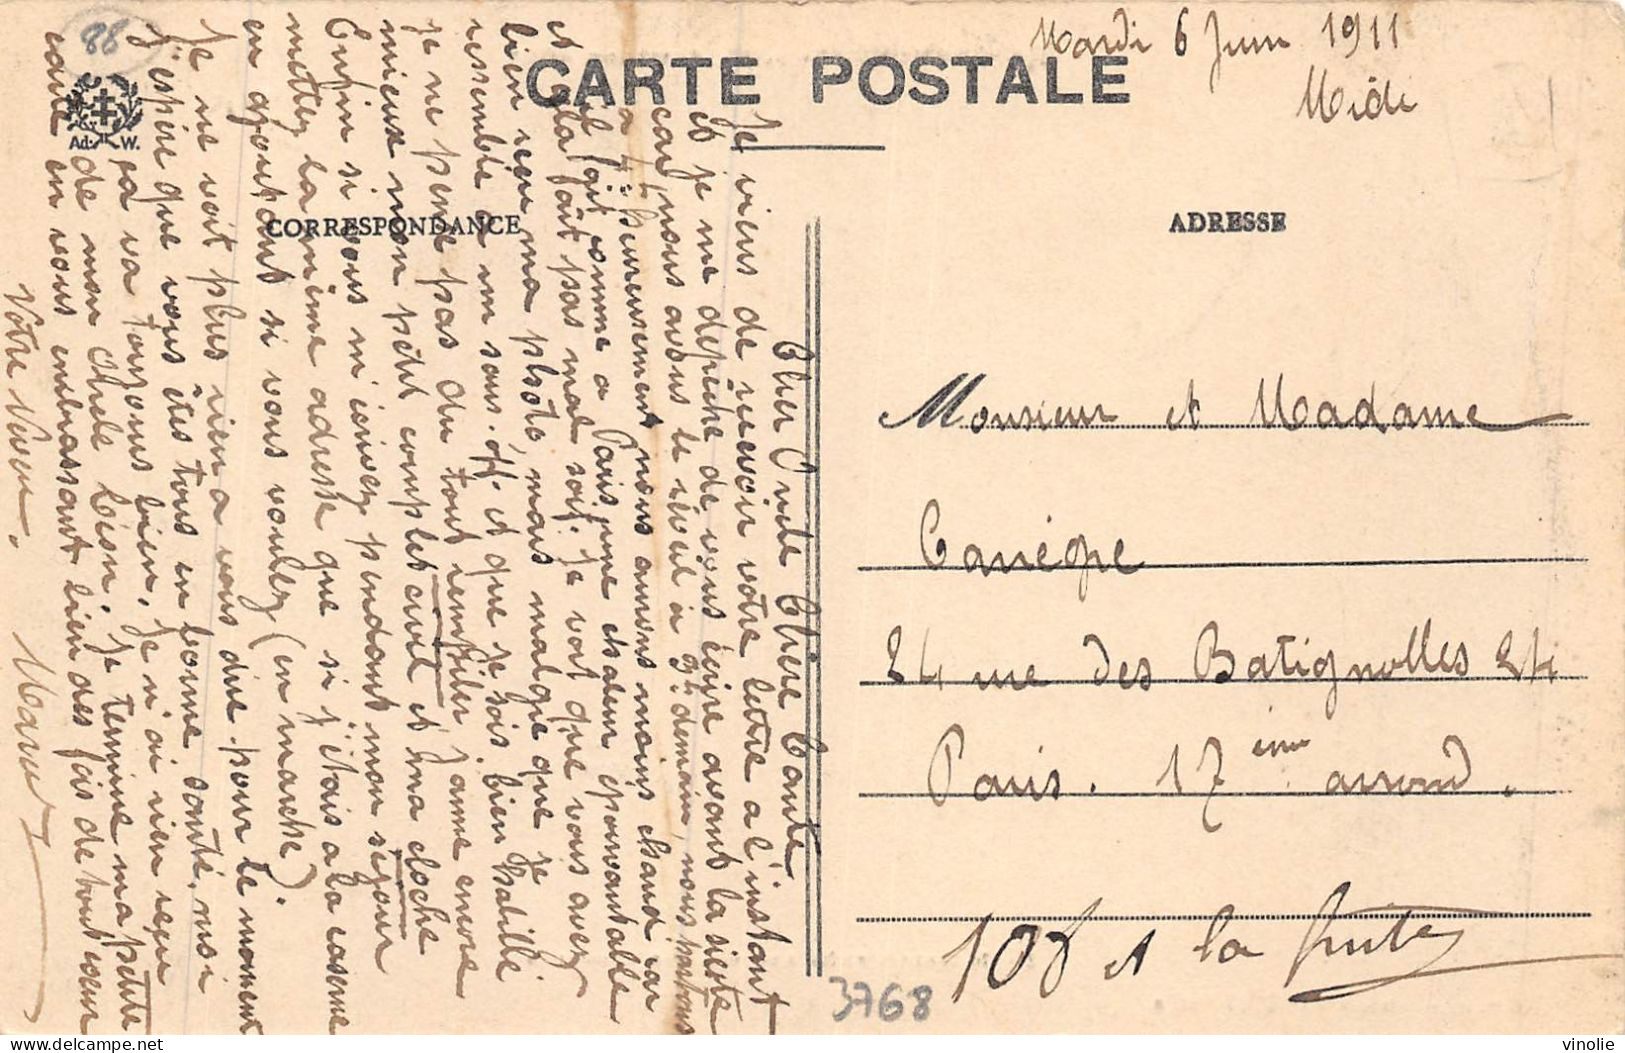 88
Mardi 6 Juin 1911
Midi
CARTE POSTALE
Ad. W.
CORRESPONDANCE
ADRESSE
Cher Oncle Chère Tante
Je viens de recevoir votre lettre a l'instant
et je me depêche de vous écrire avant la sieste
car nous avons le réveil a 3h demain, nous partons
a 4h heureusement nous aurons moins chaud car
il fait comme a Paris une chaleur épouvantable
et cela fait pas mal soif. Je voit que vous avez
bien reçu ma photo, mais malgre que je
ressemble a un sous. off. et que je sois bien habillé
je ne pense pas du tout rempiler j'aime encore
mieux mon petit complet civil et ma cloche
Enfin si vous m'écrivez pendant mon sejour
mettez la même adresse que si j'étais a la caserne
en ajoutant si vous voulez (en marche).
Je ne voit plus rien a vous dire pour le moment
J'espère que vous êtes tous en bonne santé, moi
ça va toujours bien. Je n'ai rien reçu
de mon chèle Léon. Je termine ma petite
carte en vous embrassant bien des fois de tout cœur
Votre Neveu.
Marcel
Monsieur et Madame
Canègre
24 rue des Batignolles 24
Paris. 17 ème arrond.
108 et la suite
3768
vinolie